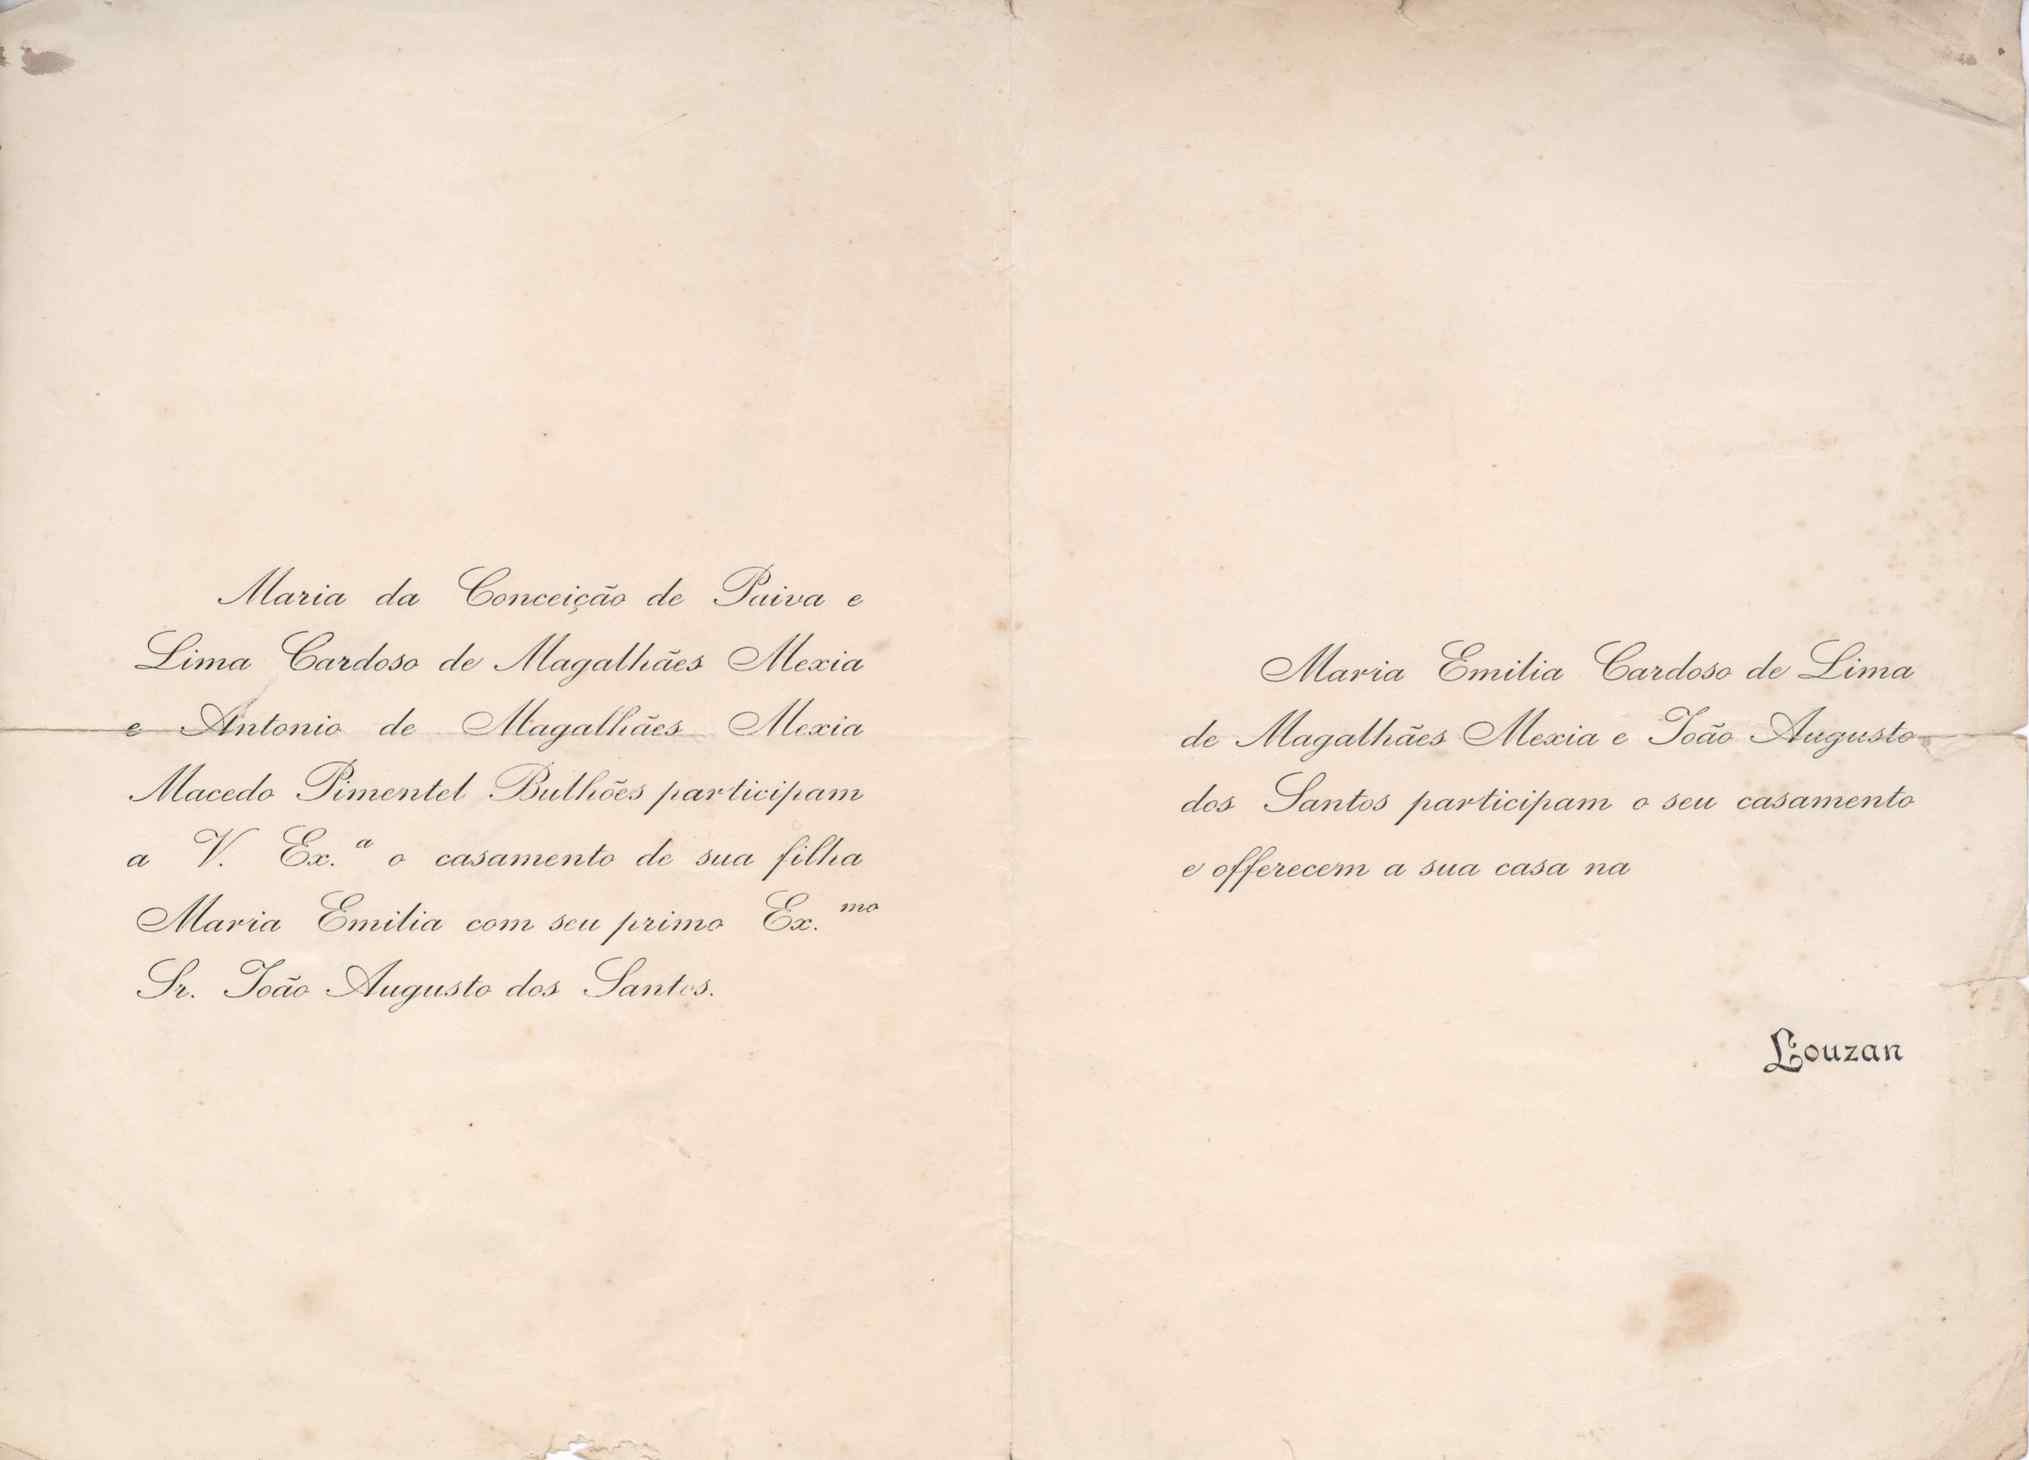 Maria da Conceição de Paiva e
Lima Cardoso de Magalhães Mexia
e Antonio de Magalhães Mexia
Macedo Pimentel Bulhões participam
a V. Ex.ª o casamento de sua filha
Maria Emilia com seu primo Ex.mo
Sr. João Augusto dos Santos.
Maria Emilia Cardoso de Lima
de Magalhães Mexia e João Augusto
dos Santos participam o seu casamento
e offerecem a sua casa na
Louzan